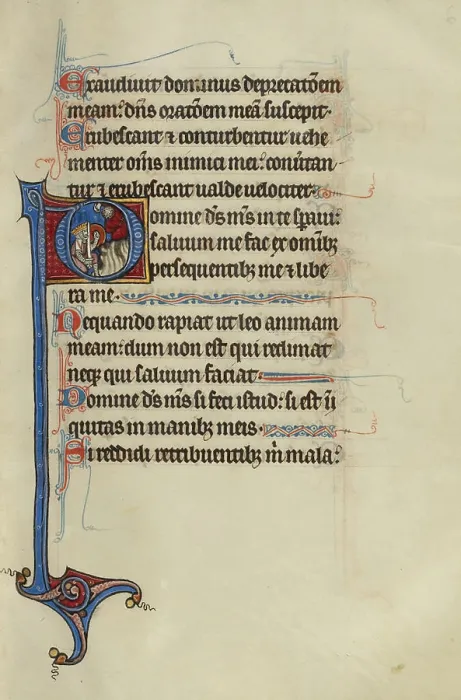 Exaudiuit dominus deprecatōem
meam: dn̄s oratōem meā suscepit·
Erubescant ⁊ conturbentur uehe
menter om̄s inimici mei: conuertan
tur ⁊ erubescant ualde uelociter·
Domine ds̄ ms̄ in te speraui:
saluum me fac ex omībꝫ
persequentibꝫ me ⁊ libe
ra me·
Nequando rapiat ut leo animam
meam: dum non est qui redimat
neqꝫ qui saluum faciat·
Domine ds̄ ms̄ si feci istud: si est īi
quitas in manibꝫ meis·
Si reddidi retribuentibꝫ m̄ mala: